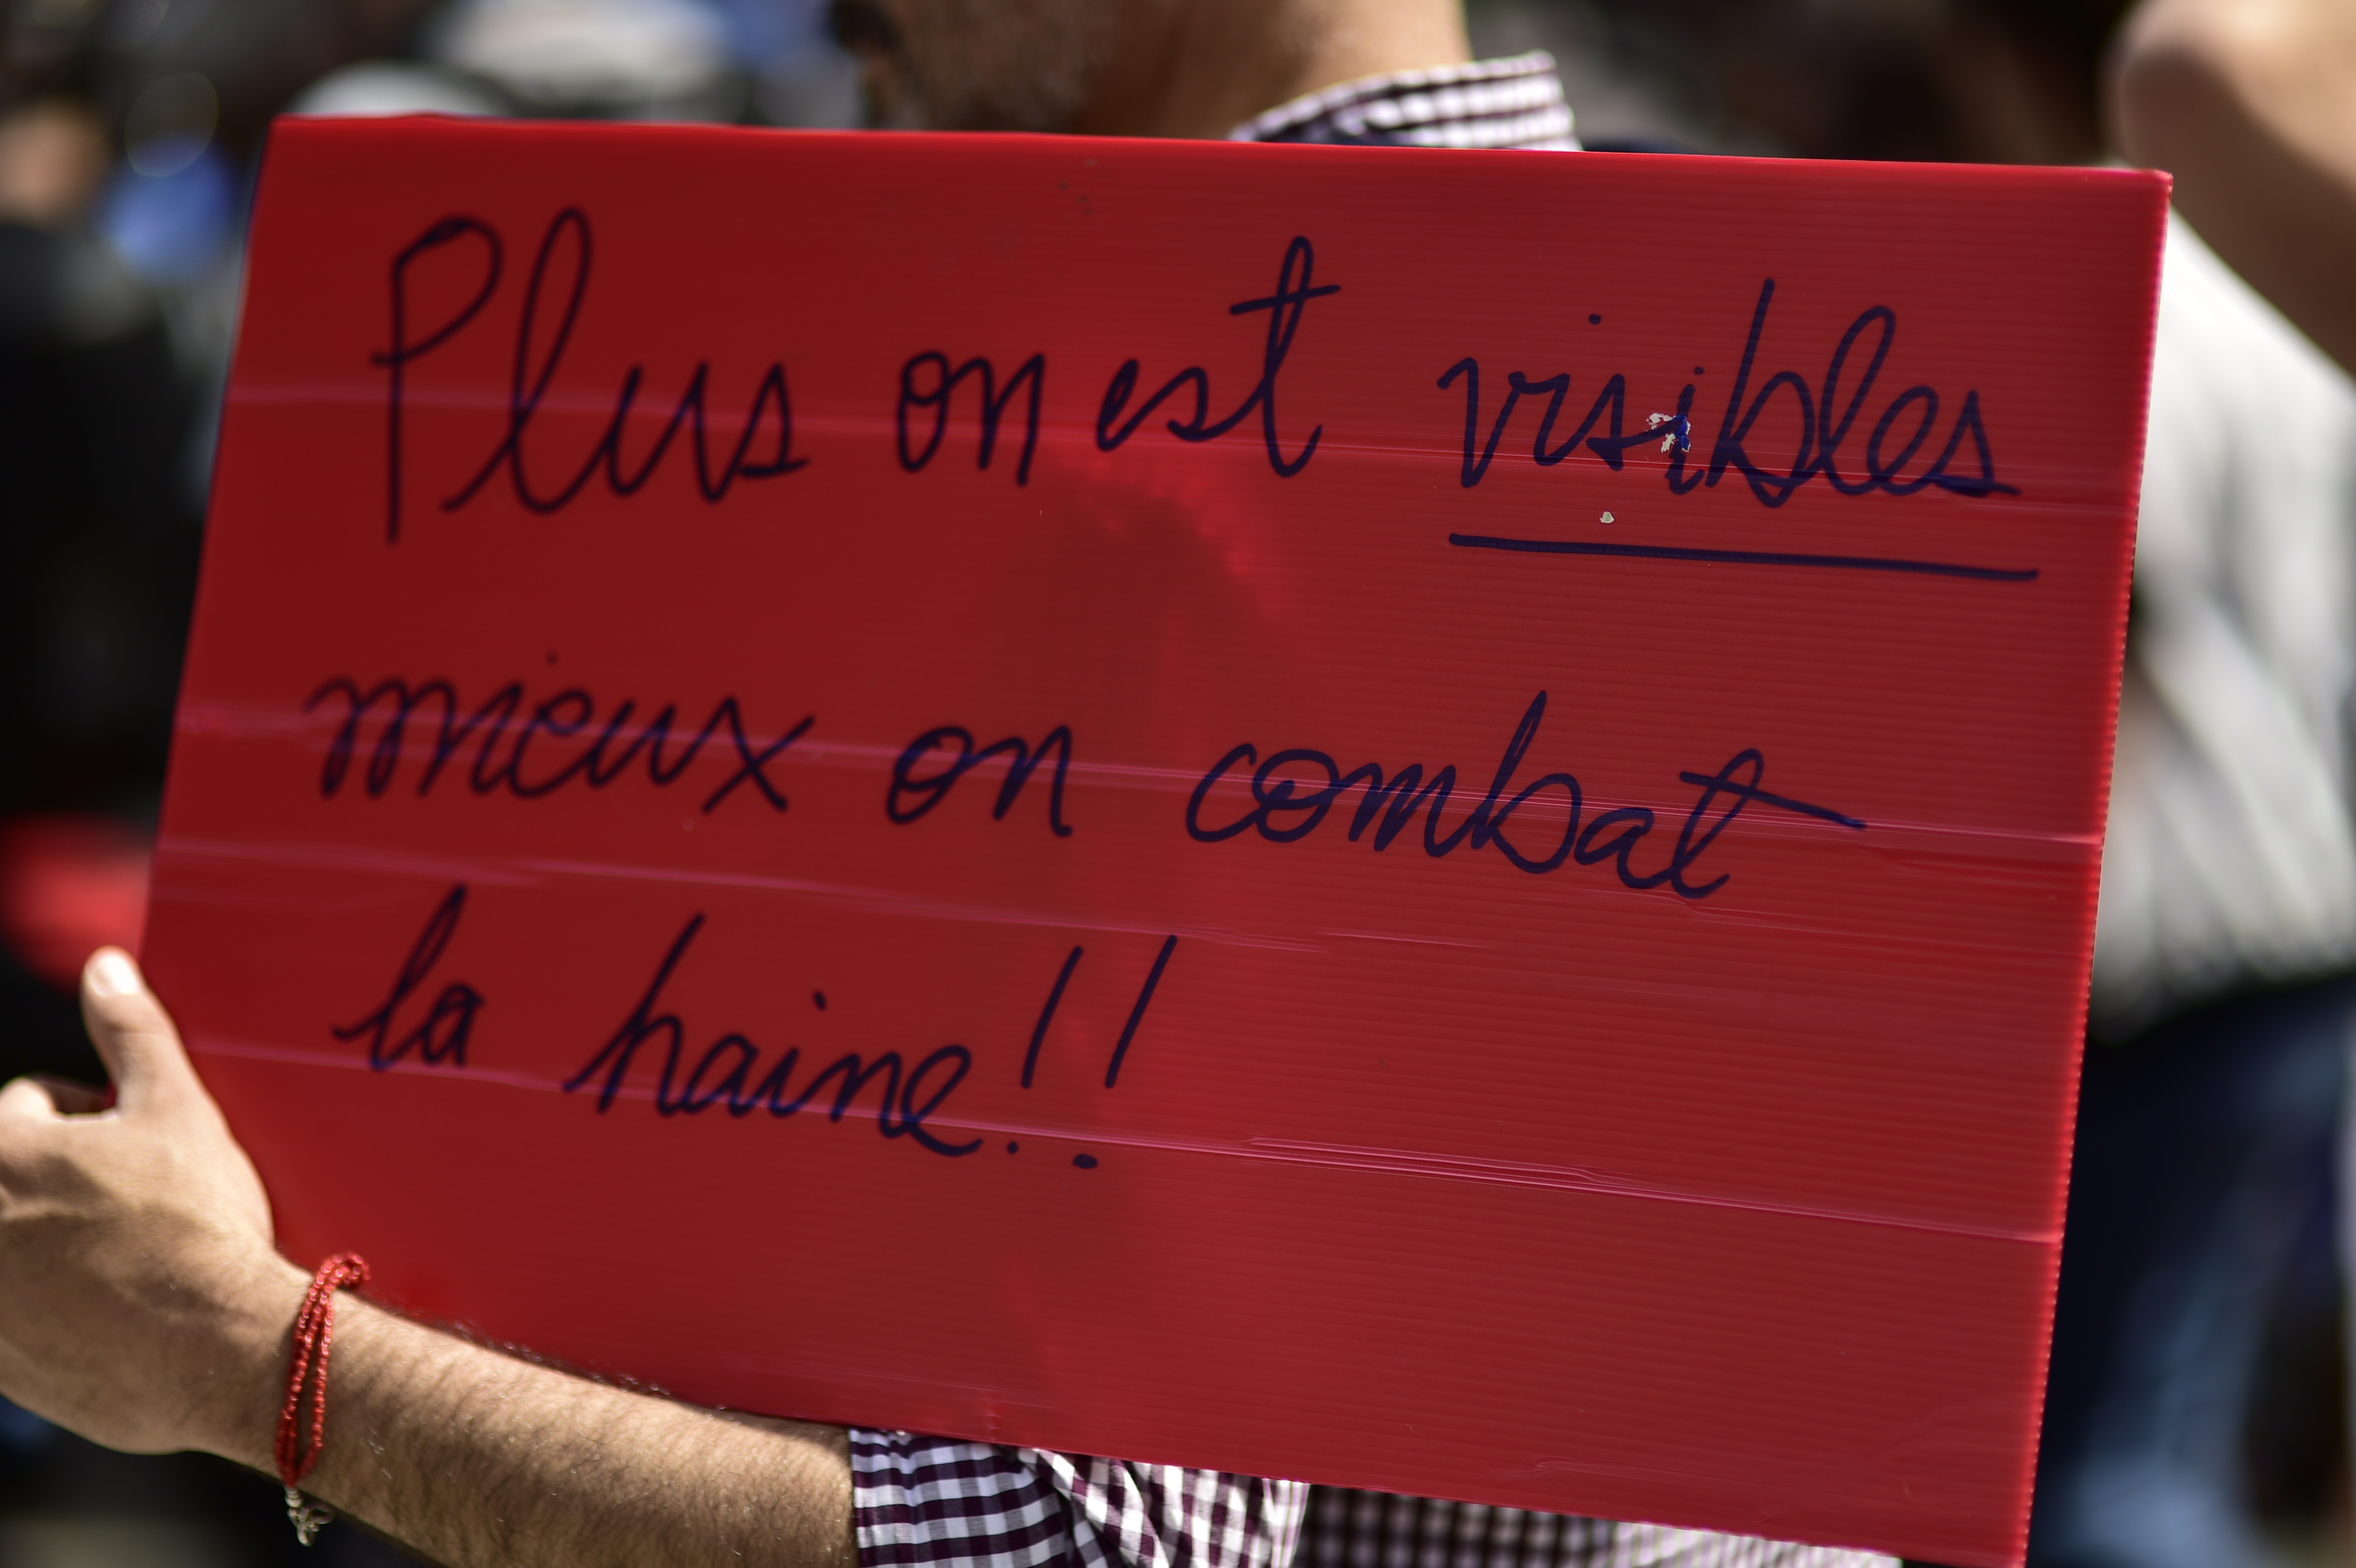 Plus on est visibles
mieux on combat
la haine!!